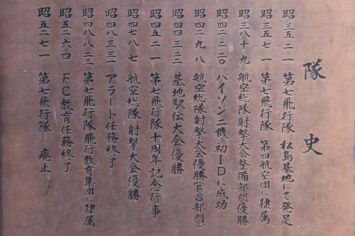 隊史
昭三五二一 第七飛行隊 松島基地にて発足
昭三五七一 第七飛行隊 第四航空団に隷属
昭三八十九 航空総隊射撃大会整備部門優勝
昭四二二二〇 バイソン二機初IDに成功
昭四二九八 航空総隊射撃大会優勝(FS部門)
昭四四三二二 基地駅伝大会優勝
昭四五二一 第七飛行隊十周年記念行事
昭四七八七 航空総隊 射撃大会優勝
昭四八三三一 アラート任務終了
昭四八八二三 第七飛行隊飛行教育集団に隷属
昭五二六四 FC教育任務終了
昭五二七一 第七飛行隊 廃止